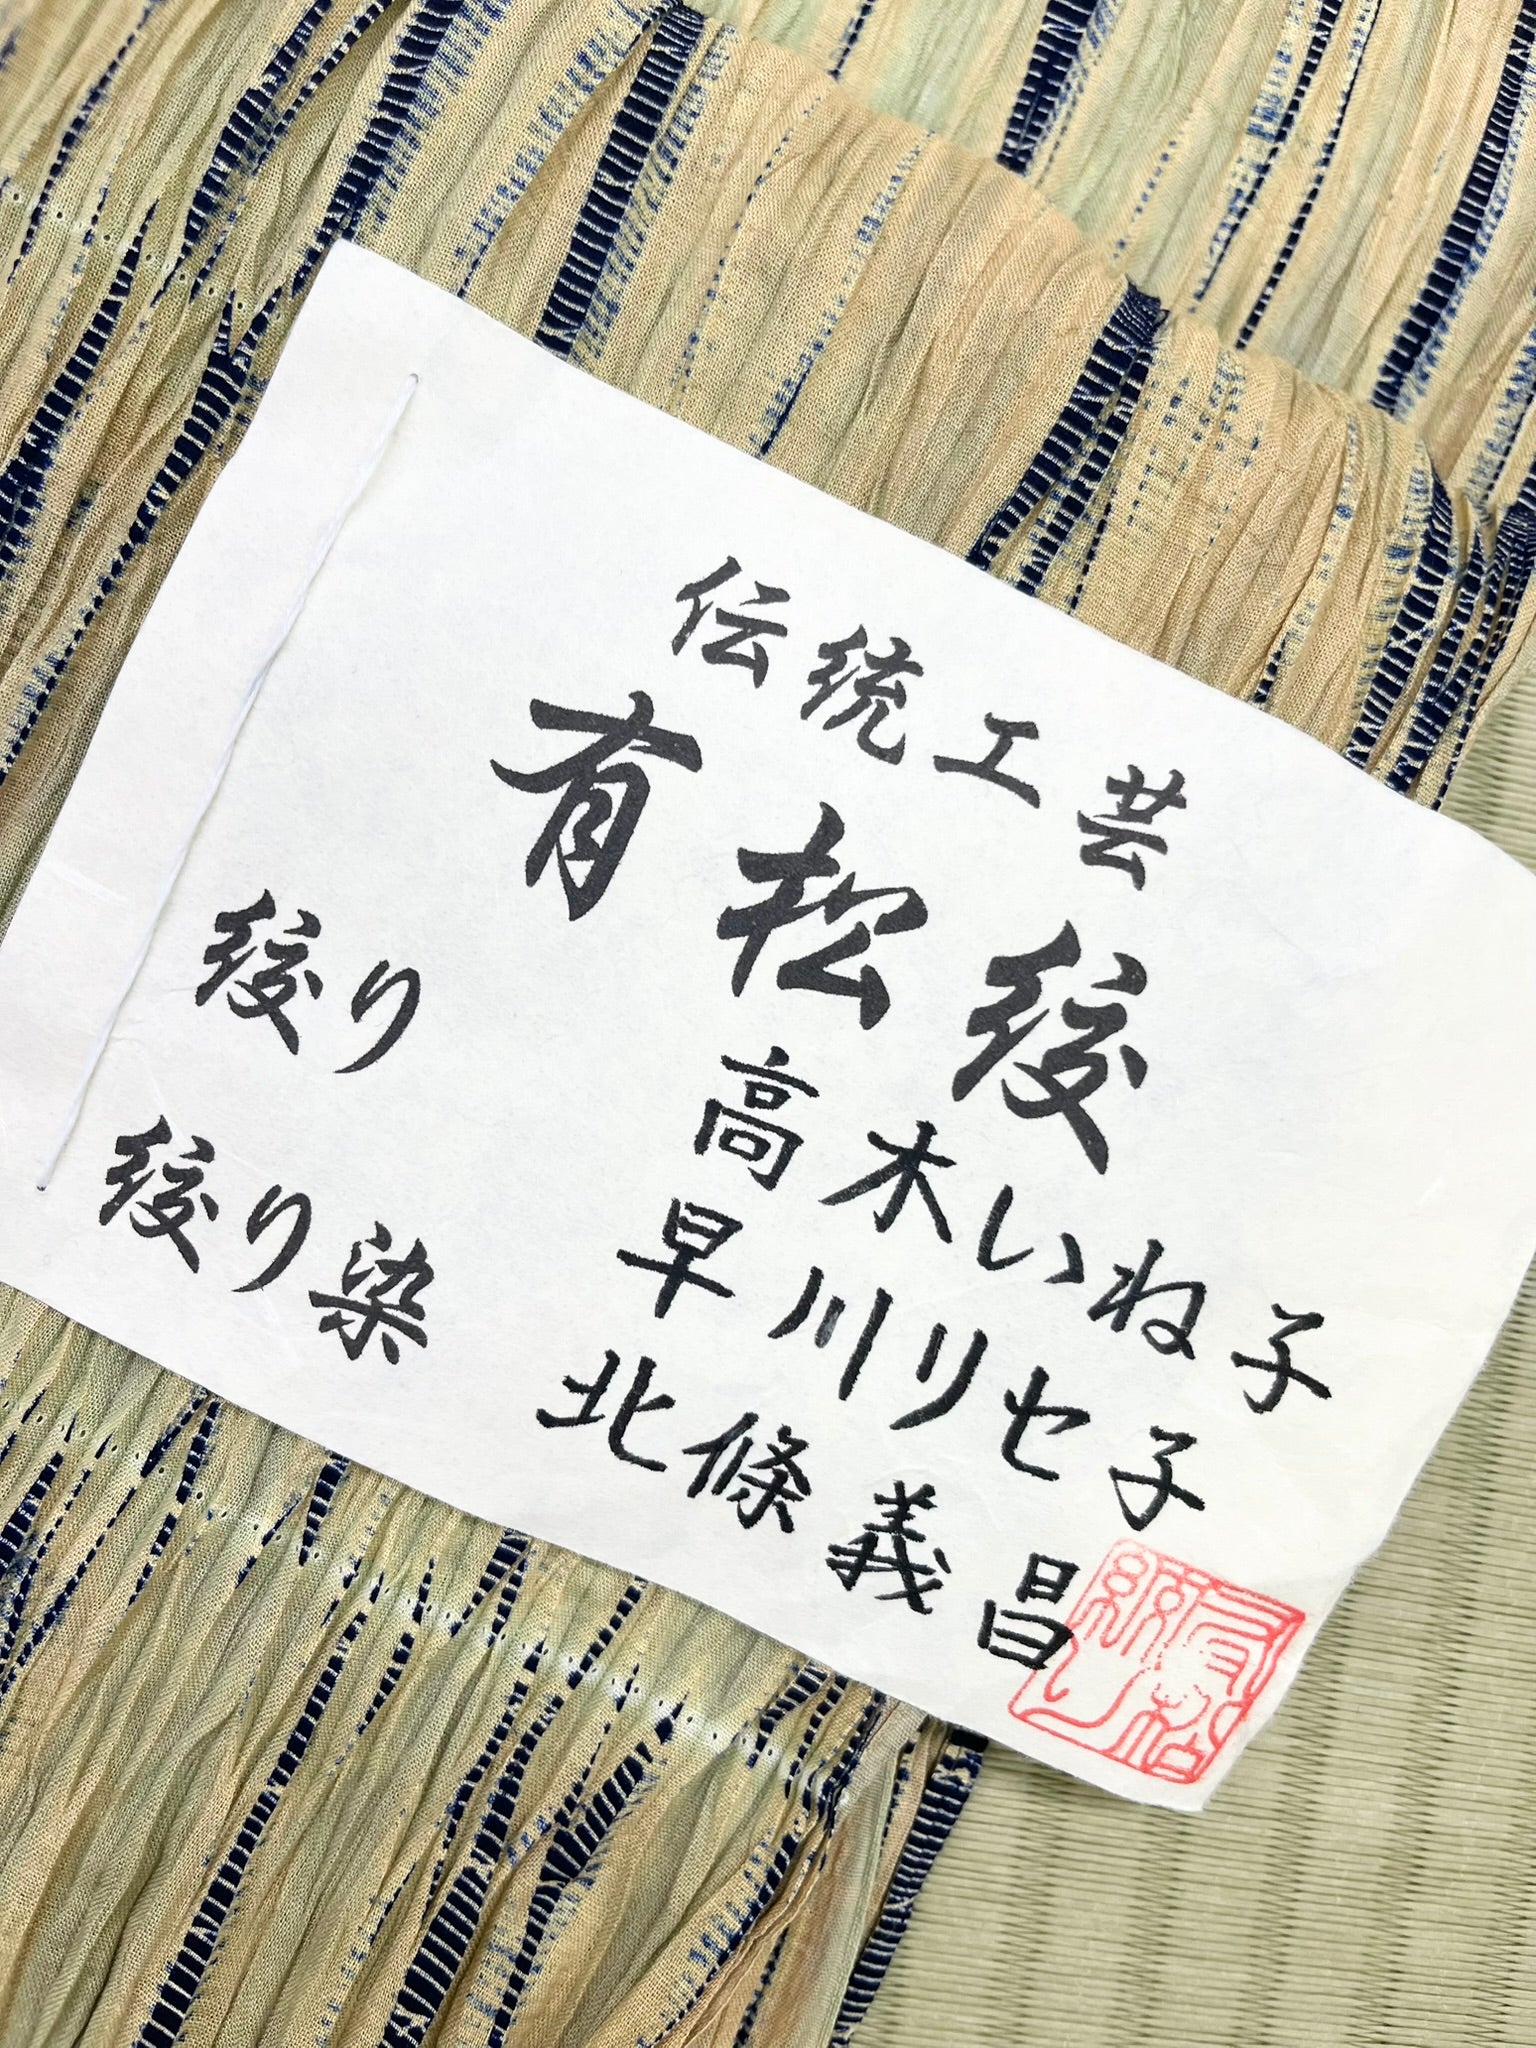 伝統工芸
有松絞
絞り 高木いね子
早川リセ子
絞り染 北條義昌
有松絞